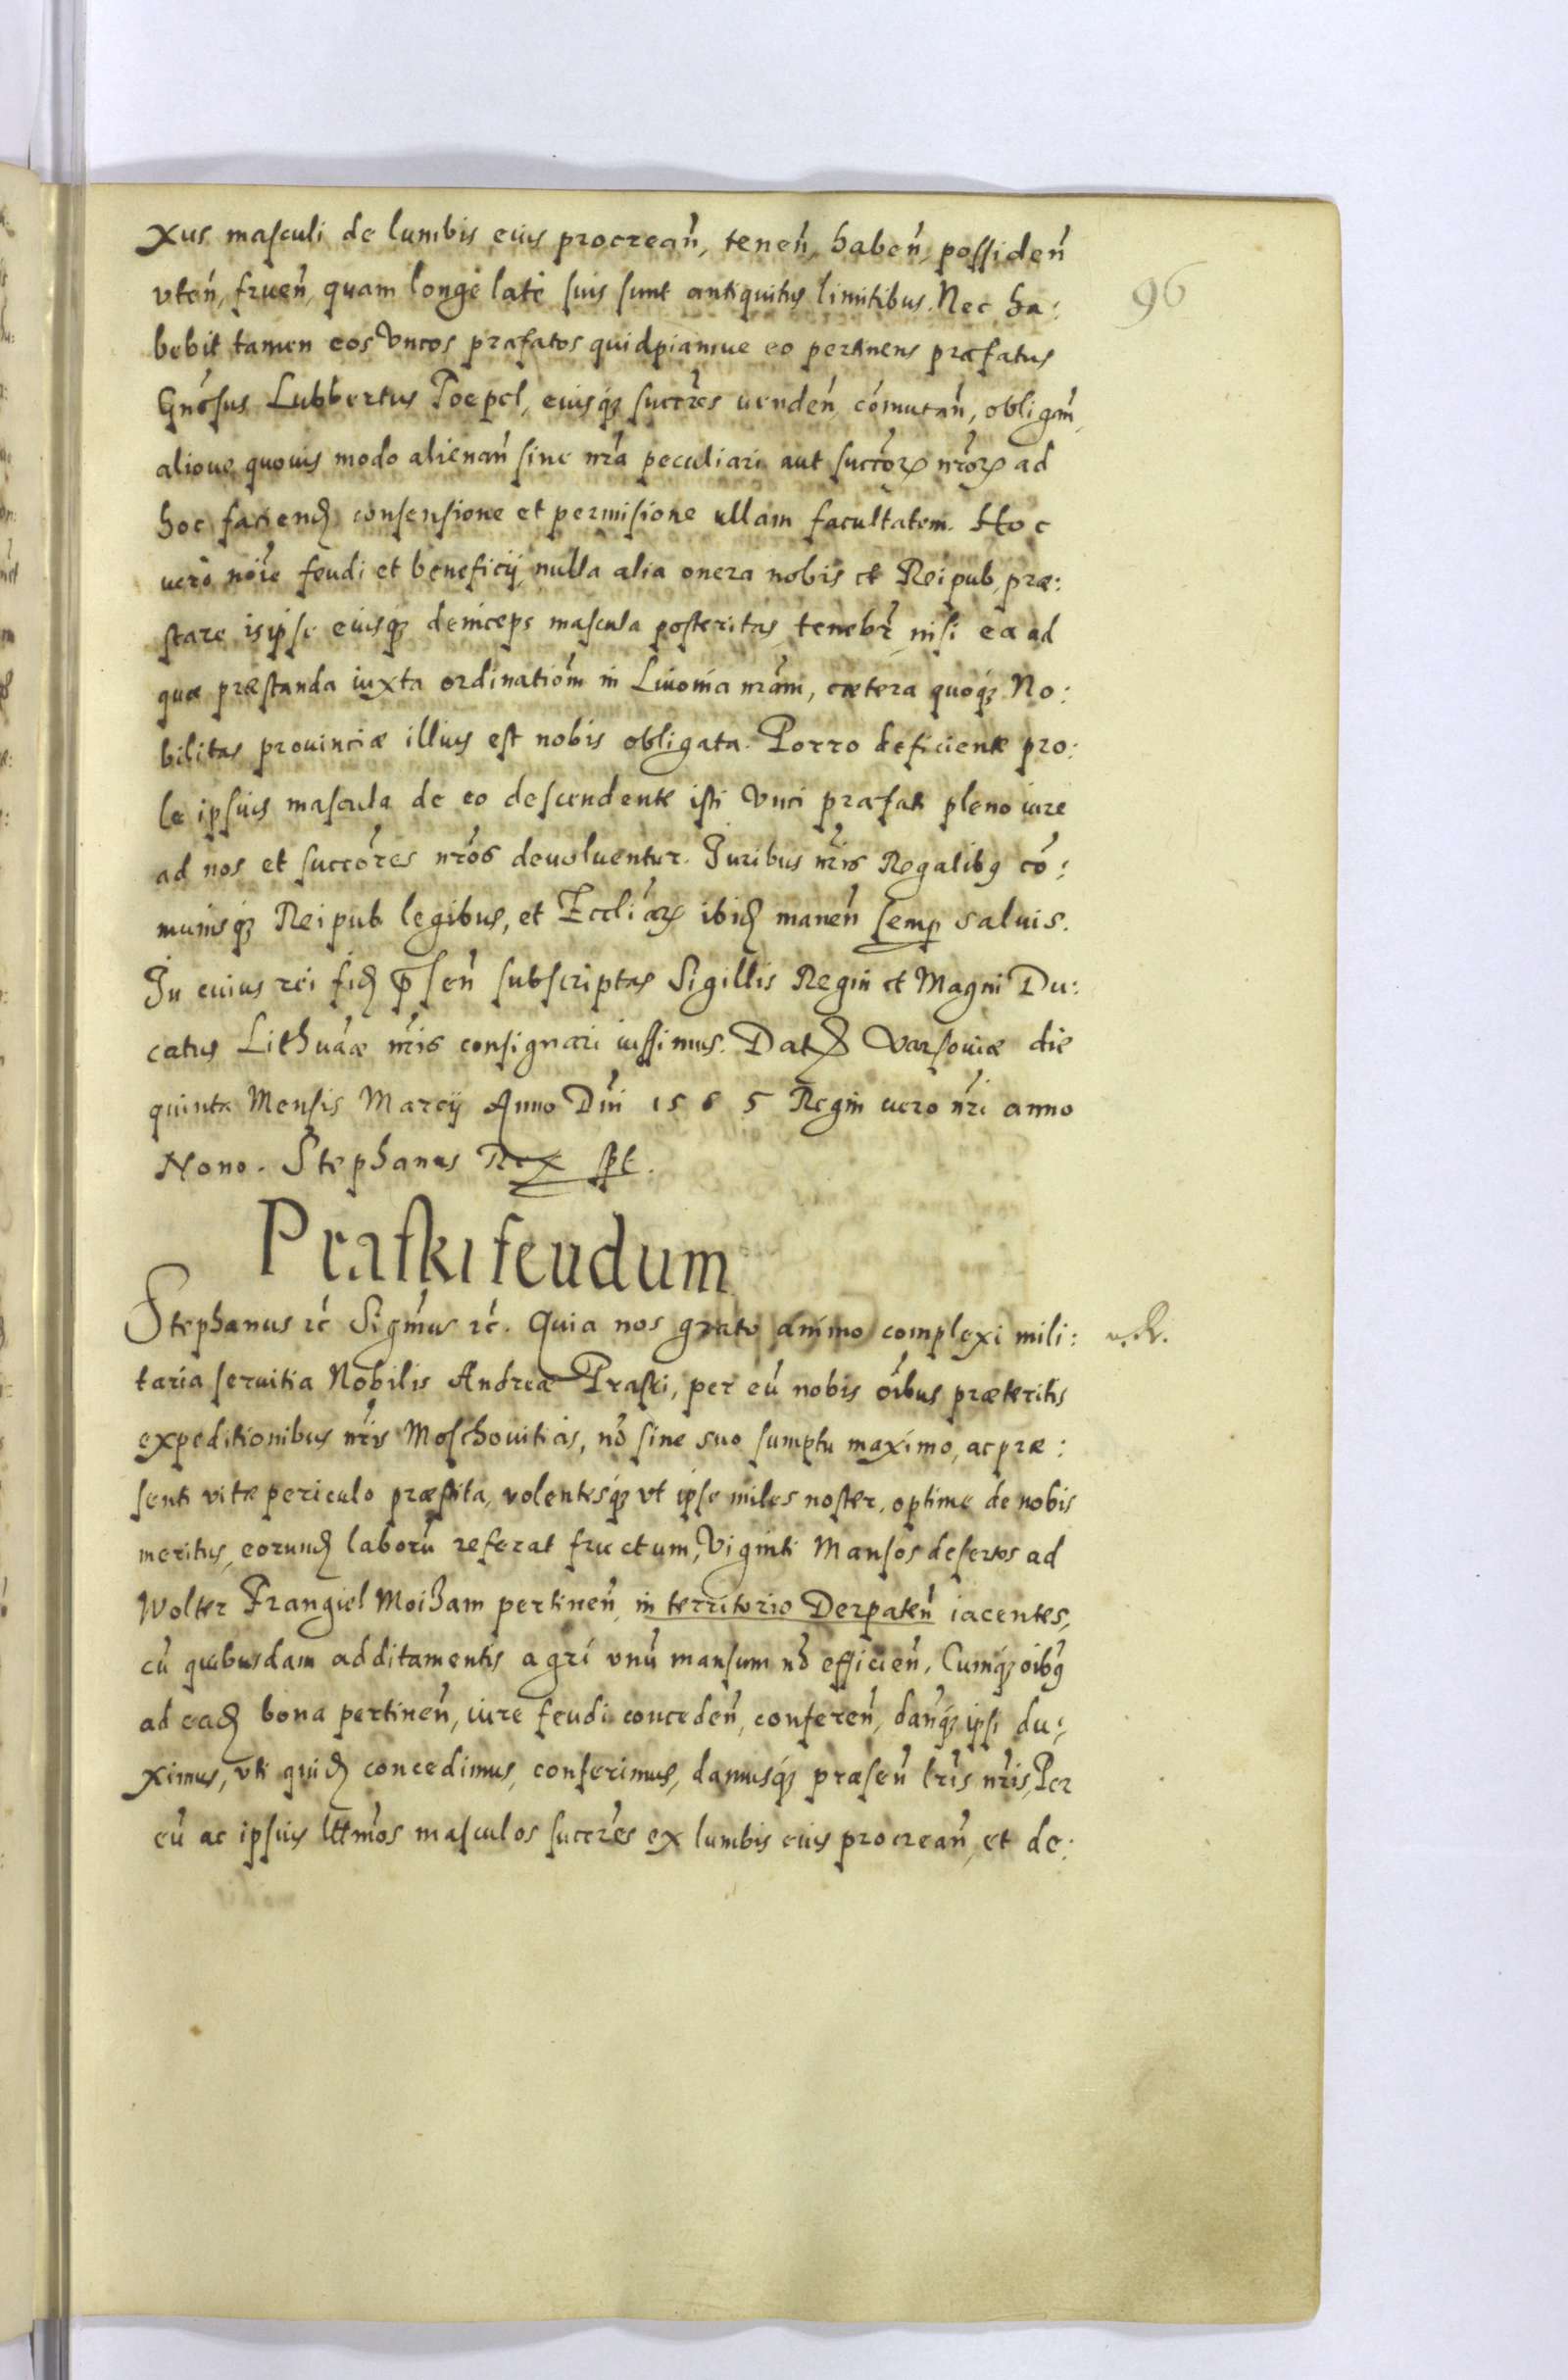 xus masculi de lumbis eius procreań, teneń, habeń, possideń
vteń, frueń, quam longè latè suis sunt antiquitus limitibus. Nec ha:
96
bebit tamen eos Vncos præfatos quidpiamue eo pertinens præfatus
Gnósus Lubbertus Poepel, eiusq́ȝ succŕes uendeń, cómutań, obligań,
alioue quouis modo alienań sine nŕa peculiari aut succóꝝ nŕoꝝ ad
hoc faciend̃ consensione et permisione ullam facultatem. Hoc
uerò nóie feudi et beneficij nulla alia onera nobis et Reipub. præ:
stare is ipse eiusq́ȝ deinceps mascula posteritas, tenebŕ, nisi ea ad
quæ præstanda iuxta ordinatióm in Liuonia nŕam, cætera quoq́ȝ No:
bilitas prouinciæ illius est nobis obligata. Porro deficiente pro:
le ipsius mascula de eo descendente isti Vnci præfati pleno iure
ad nos et succóres nŕos deuoluentur. Juribus nŕis Regalibꝰ có:
munisq́ȝ Reipub legibus, et Eccliáꝝ ibid̃ maneń semꝑ saluis.
In cuius rei fid̃ p̃señ subscriptas Sigillis Regni et Magni Du:
catus Lithuáæ nŕis consignari iussimus. Dat̃ Varsouiæ die
quinta Mensis Marcij Anno Dńi 1585 Regni uero nŕi anno
Nono. Stephanus Rex sst.
Praski feudum
Stephanus ꝛć Sigḿus ꝛć. Quia nos grato animo complexi mili:
n. R.
taria seruitia Nobilis Andreæ Praski, per eú nobis óibus præteritis
expeditionibus nŕis Moschouiticis, nó sine suo sumptu maximo, ac præ:
senti vitæ periculo præstita, volentesq́ȝ vt ipse miles noster, optime de nobis
meritus, eorund̃ laború referat fructum, Viginti Mansos desertos ad
Wolter Frangiel Moizam pertineń, in territorio Derpateń iacentes,
cú quibusdam additamentis agri vnú mansum nó efficień, Cumq́ȝ oibꝰ
ad ead̃ bona pertineń, iure feudi concedeń, confereń, dańq́ȝ ipsi du:
ximus, vti quid̃ concedimus, conferimus, damusq́ȝ præseń lŕis nŕis, Per
eú ac ipsius lttḿos masculos succŕes ex lumbis eius procreań, et de: